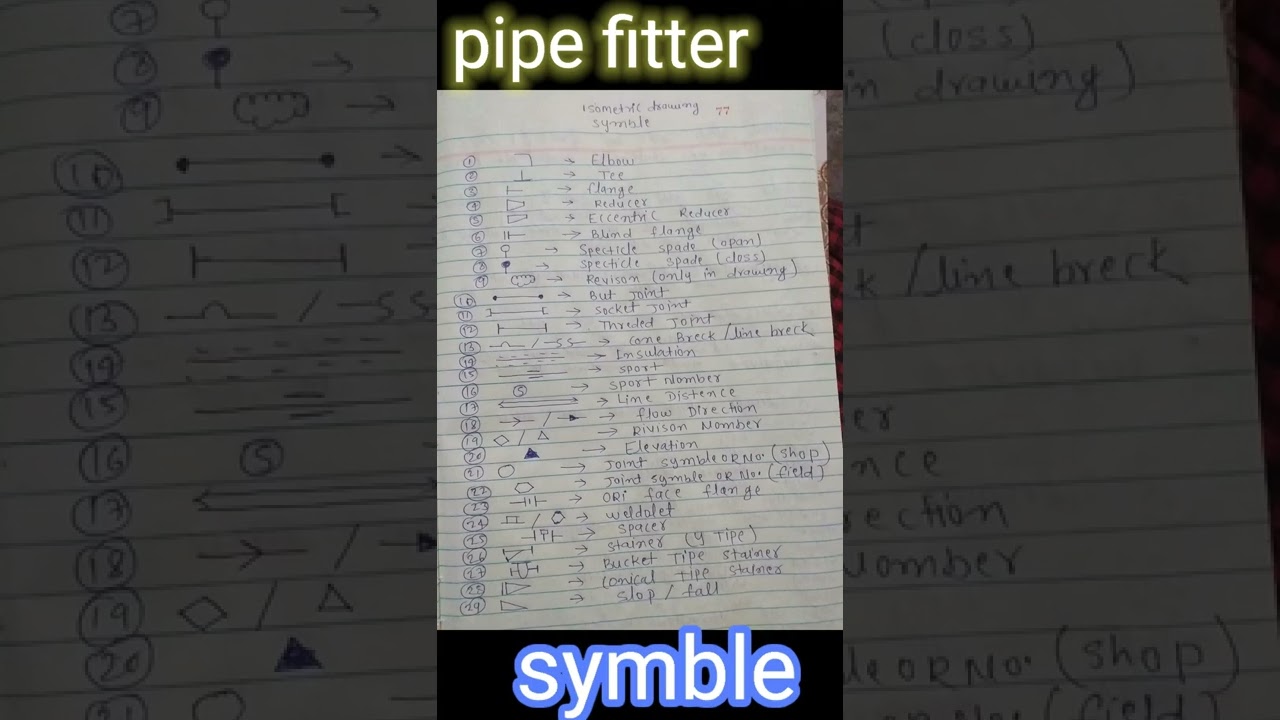 pipe fitter
isometric drawing 77
symble
1 → Elbow
2 → Tee
3 → flange
4 → Reducer
5 → Eccentric Reducer
6 → Blind flange
7 → Specticle spade (opan)
8 → specticle spade (closs)
9 → Revison (only in drawing)
10 → But joint
11 → socket joint
12 → Threded Joint
13 / SS → cone Breck / line breck
14 → Insulation
15 → sport
16 S → sport Nomber
17 → Line Distence
18 / → flow Direction
19 / → Rivison Nomber
20 → Elevation
21 → Joint symble OR No. (shop)
22 → Joint symble OR No. (field)
23 → ORi face flange
24 / → weldolet
25 → spacer
26 → stainer (y Tipe)
27 → Bucket Tipe stainer
28 → conical tipe stainer
29 → slop / fall
symble
7 →
8 →
9 →
10 →
11
12
13 / SS
14
15
16 S
17
18 /
19 /
20
21
(closs)
in drawing)
/ line breck
(shop)
(field)